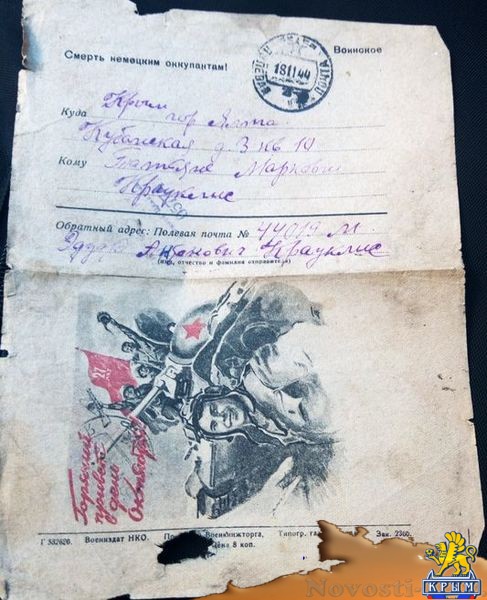 Воинское
Смерть немецким оккупантам!
18 11 44
Куда Крым
гор Ялта
Кубанская д. 3 кв 10
Кому Татьяне Маркович
Прауклис
Обратный адрес: Полевая почта № 44019 М
Эдуард Прауклис
(имя, отчество и фамилия отправителя)
27
Горячий
привет
в день
Октября!
Г 582620. Воениздат НКО. Военкнижторга, Типогр. Зак. 2360.
Цена 8 коп.
Novosti-
КРЫМ